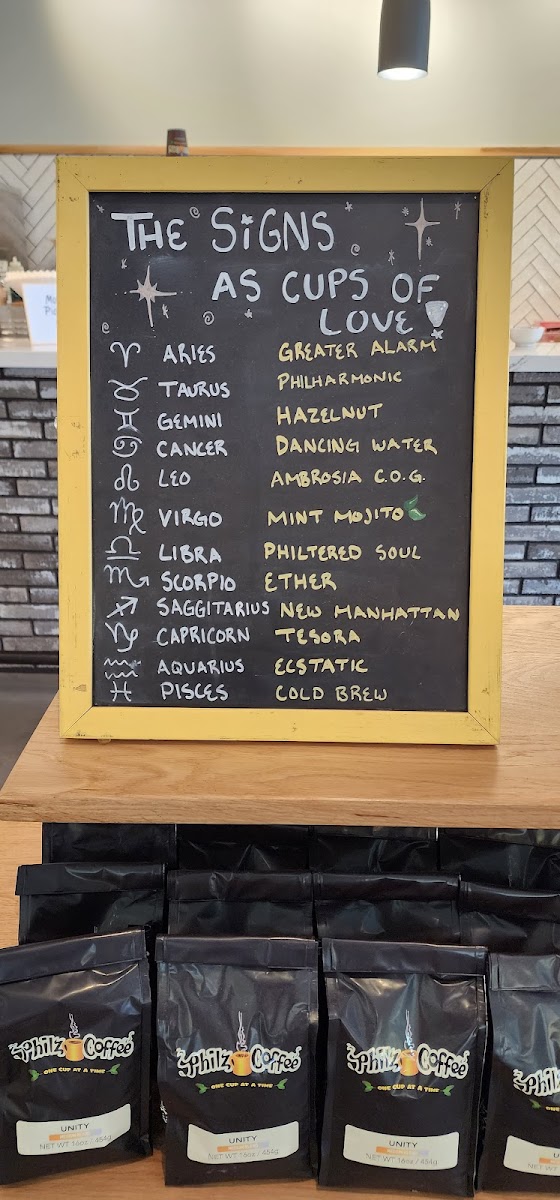 THE SiGNS
AS CUPS OF
LOVE
♈ ARIES GREATER ALARM
♉ TAURUS PHILHARMONIC
♊ GEMINI HAZELNUT
♋ CANCER DANCING WATER
♌ LEO AMBROSIA C.O.G.
♍ VIRGO MINT MOJITO
♎ LIBRA PHILTERED SOUL
♏ SCORPIO ETHER
♐ SAGGITARIUS NEW MANHATTAN
♑ CAPRICORN TESORA
♒ AQUARIUS ECSTATIC
♓ PISCES COLD BREW
Philz Coffee
ONE CUP AT A TIME
UNITY
NET WT 16oz / 454g
Philz Coffee
ONE CUP AT A TIME
UNITY
NET WT 16oz / 454g
Philz Coffee
ONE CUP AT A TIME
UNITY
NET WT 16oz / 454g
Philz
ONE
UNITY
NET WT 16oz